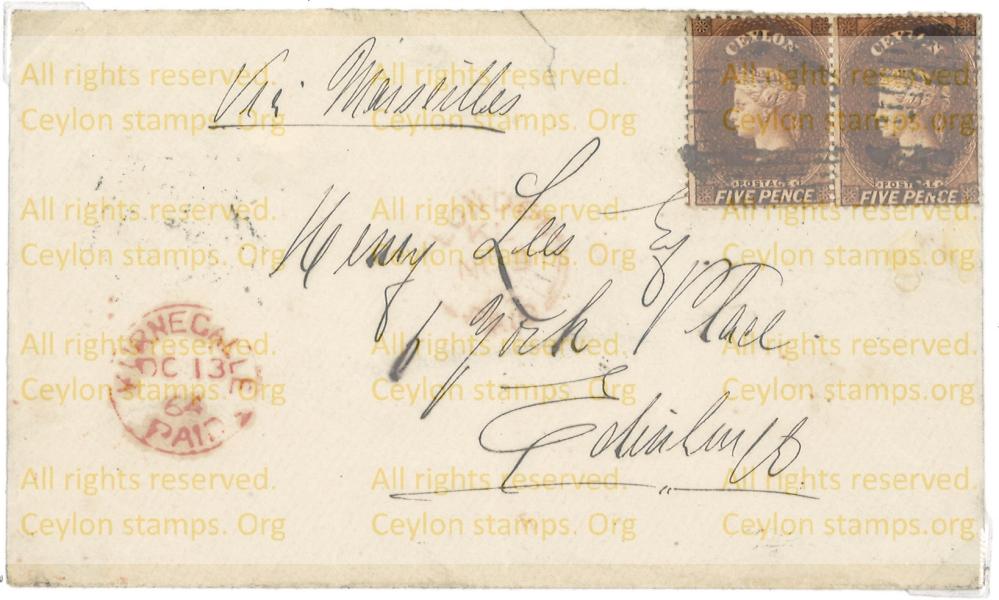 CEYLON
POSTAGE
FIVE PENCE
CEYLON
POSTAGE
FIVE PENCE
Via Marseilles
Henry Lees Esq
6 York Place
Edinburgh
KURNEGALLE
OC 13
64
PAID
LONDON
All rights reserved. All rights reserved. All rights reserved.
Ceylon stamps. Org Ceylon stamps. Org Ceylon stamps. Org
All rights reserved. All rights reserved. All rights reserved.
Ceylon stamps. Org Ceylon stamps. Org Ceylon stamps. Org
All rights reserved. All rights reserved. All rights reserved.
Ceylon stamps. Org Ceylon stamps. Org Ceylon stamps. Org
All rights reserved. All rights reserved. All rights reserved.
Ceylon stamps. Org Ceylon stamps. Org Ceylon stamps. Org